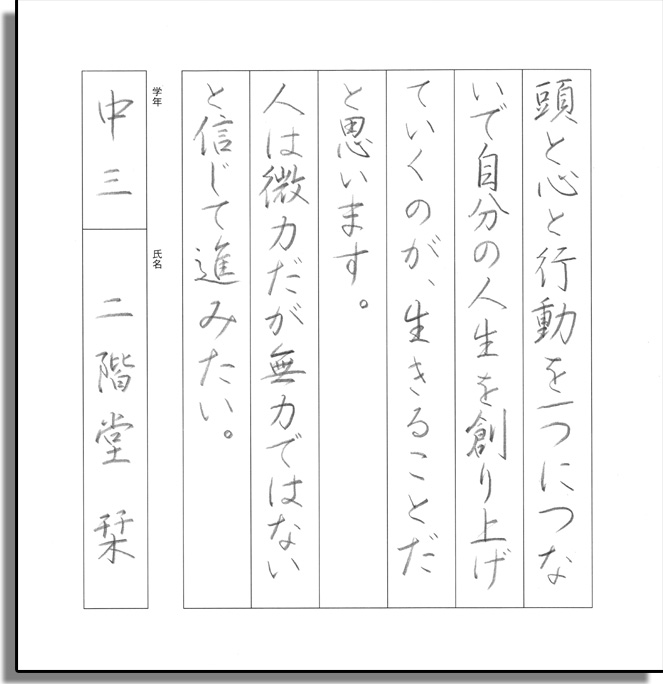 頭と心と行動を一つにつな
いで自分の人生を創り上げ
ていくのが、生きることだ
と思います。
人は微力だが無力ではない
と信じて進みたい。
学年
中三
氏名
二階堂 栞